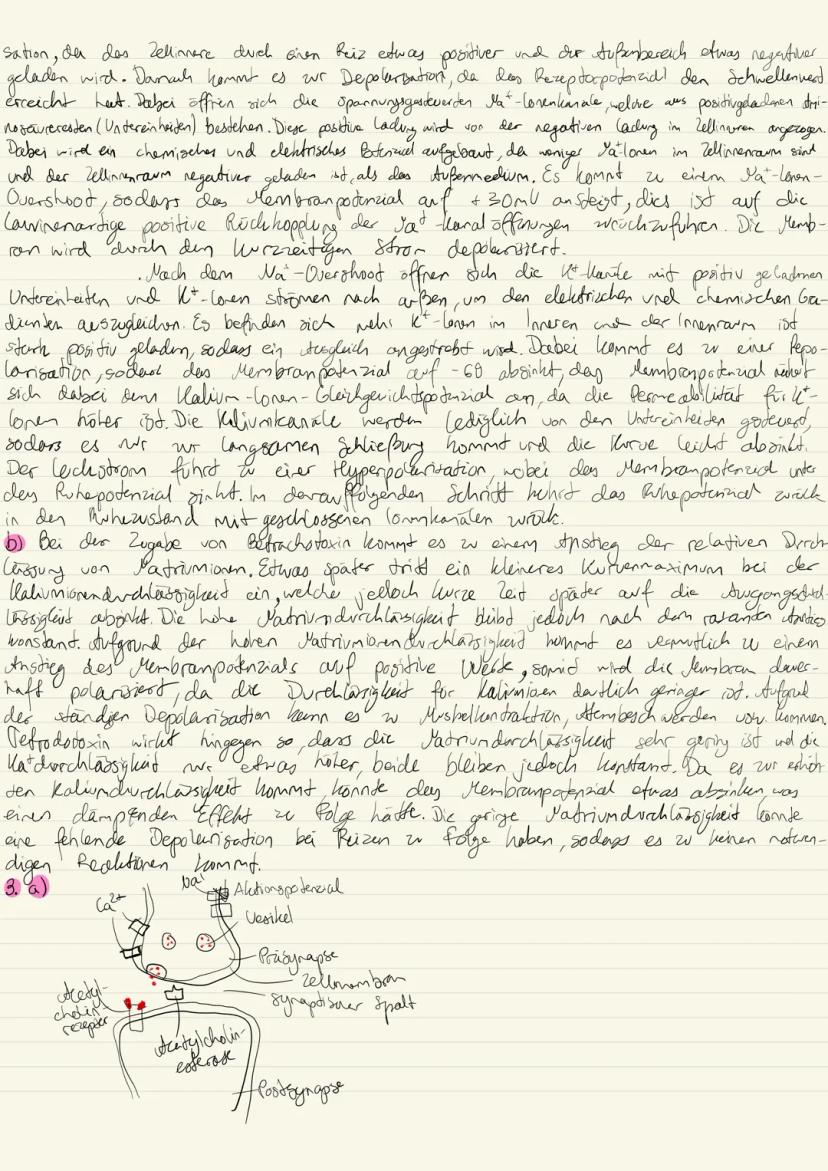 sation, da das Zellinnere durch einen Reiz etwas positiver und der Außenbereich etwas negativer
geladen wird. Danach kommt es zur Depolarisation, da das Rezeptorpotenzial den Schwellenwert
erreicht hat. Dabei öffnen sich die spannungsgesteuerten Na⁺-Ionenkanäle, welche aus positivgeladenen Ami-
nosäureresten (Untereinheiten) bestehen. Diese positive Ladung wird von der negativen Ladung im Zellinneren angezogen.
Dabei wird ein chemisches und elektrisches Potenzial aufgebaut, da weniger Na⁺-Ionen im Zellinnenraum sind
und der Zellinnenraum negativer geladen ist, als das Außenmedium. Es kommt zu einem Na⁺-Ionen-
Overshoot, sodass das Membranpotenzial auf +30mV ansteigt, dies ist auf die
lawinenartige positive Rückkopplung der Na⁺-Kanalöffnungen zurückzuführen. Die Memb-
ran wird durch den kurzzeitigen Strom depolarisiert.
Nach dem Na⁺-Overshoot öffnen sich die K⁺-Kanäle mit positiv geladenen
Untereinheiten und K⁺-Ionen strömen nach außen, um den elektrischen und chemischen Gra-
dienten auszugleichen. Es befinden sich mehr K⁺-Ionen im Inneren und der Innenraum ist
stark positiv geladen, sodass ein Ausgleich angestrebt wird. Dabei kommt es zu einer Repo-
larisation, sodass das Membranpotenzial auf -60 absinkt, das Membranpotenzial nähert
sich dabei dem Kalium-Ionen-Gleichgewichtspotenzial an, da die Permeabilität für K⁺-
Ionen höher ist. Die Kaliumkanäle werden lediglich von den Untereinheiten gesteuert,
sodass es nur zur langsamen Schließung kommt und die Kurve leicht absinkt.
Der Leckstrom führt zu einer Hyperpolarisation, wobei das Membranpotenzial unter
das Ruhepotenzial sinkt. Im darauffolgenden Schritt kehrt das Ruhepotenzial zurück
in den Ruhezustand mit geschlossenen Ionenkanälen zurück.
b) Bei der Zugabe von Batrachotoxin kommt es zu einem Anstieg der relativen Durch-
lässung von Natriumionen. Etwas später tritt ein kleineres Kurvenmaximum bei der
Kaliumionendurchlässigkeit ein, welche jedoch kurze Zeit später auf die Ausgangsdurch-
lässigkeit absinkt. Die hohe Natriumdurchlässigkeit bleibt jedoch nach dem rasanten Anstieg
konstant. Aufgrund der hohen Natriumionendurchlässigkeit kommt es vermutlich zu einem
Anstieg des Membranpotenzials auf positive Werte, somit wird die Membran dauer-
haft polarisiert, da die Durchlässigkeit für Kaliumionen deutlich geringer ist. Aufgrund
der ständigen Depolarisation kann es zu Muskelkontraktion, Atembeschwerden usw. kommen.
Tetrodotoxin wirkt hingegen so, dass die Natriumdurchlässigkeit sehr gering ist und die
Ka⁺durchlässigkeit nur etwas höher, beide bleiben jedoch konstant. Da es zur erhöh-
ten Kaliumdurchlässigkeit kommt, könnte das Membranpotenzial etwas absinken, was
einen dämpfenden Effekt zu Folge hätte. Die geringe Natriumdurchlässigkeit könnte
eine fehlende Depolarisation bei Reizen zu Folge haben, sodass es zu keinen notwen-
digen Reaktionen kommt.
3. a)
Na⁺
Aktionspotenzial
Ca²⁺
Vesikel
Präsynapse
Zellmembran
synaptischer Spalt
Acetyl-
cholin-
rezeptor
Acetylcholin-
esterase
Postsynapse